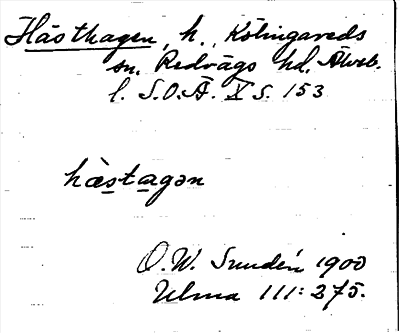 Hästhagen, h., Kölingareds
sn, Redvägs hd, Älvsb.
l. S.O.Ä. X S. 153
hæstagən
O.W. Sundén 1900
Ulma 111:275.